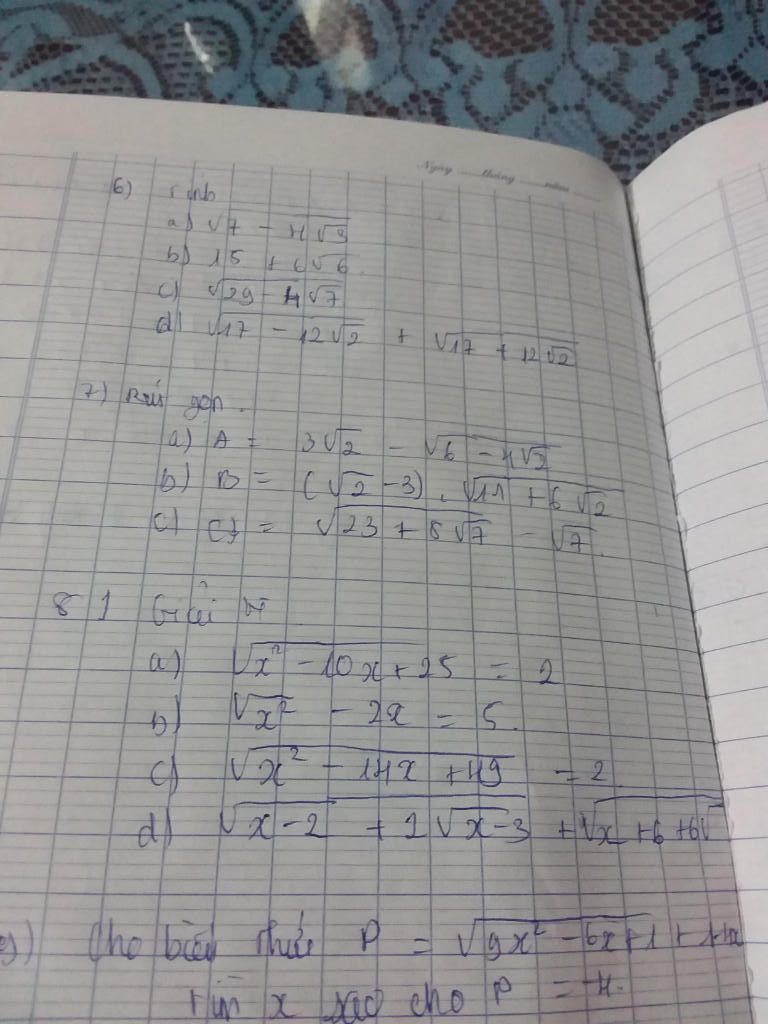 Ngày tháng năm
6) Tính
a) √7 - 4√3
b) 15 + 6√6
c) √29 - 4√7
d) √17 - 12√2 + √17 + 12√2
7) Rút gọn.
a) A = 3√2 - √6 - 4√2
b) B = (√2 - 3) . √11 + 6√2
c) C = √23 + 8√7 - √7.
8) Giải pt
a) √x² - 10x + 25 = 2
b) √x² - 2x = 5.
c) √x² - 14x + 49 = 2
d) √x - 2 + 2√x - 3 + √x + 6 + 6√
9) Cho biểu thức P = √9x² - 6x + 1 +
Tìm x sao cho P = -4.